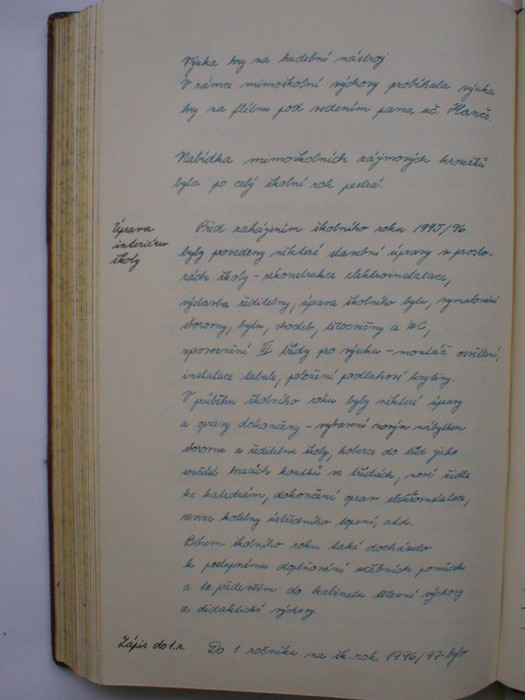 Výuka hry na hudební nástroj
V rámci mimoškolní výchovy probíhala výuka
hry na flétnu pod vedením pana uč. Hanč.
Nabídka mimoškolních zájmových kroužků
byla po celý školní rok pestrá.
Úprava
interiéru
školy
Před zahájením školního roku 1995/96
byly provedeny některé stavební úpravy v prosto-
rách školy - rekonstrukce elektroinstalace,
výstavba ředitelny, úprava školního bytu, vymalování
sborovny, bytu, chodeb, tělocvičny a WC,
zprovoznění III. třídy pro výuku - montáž osvětlení,
instalace tabule, položení podlahové krytiny.
V průběhu školního roku byly některé úpravy
a opravy dokončeny - vybavení novým nábytkem
sborovna a ředitelna školy, koberce do tříd jako
součást hracích koutků ve třídách, nové židle
ke katedrám, dokončení oprav elektroinstalace,
revize kotelny ústředního topení, atd.
Během školního roku také docházelo
k postupnému doplňování učebních pomůcek
a to především do kabinetu tělesné výchovy
a didaktické výchovy.
Zápis do 1. r.
Do 1. ročníku na šk. rok 1996/97 bylo